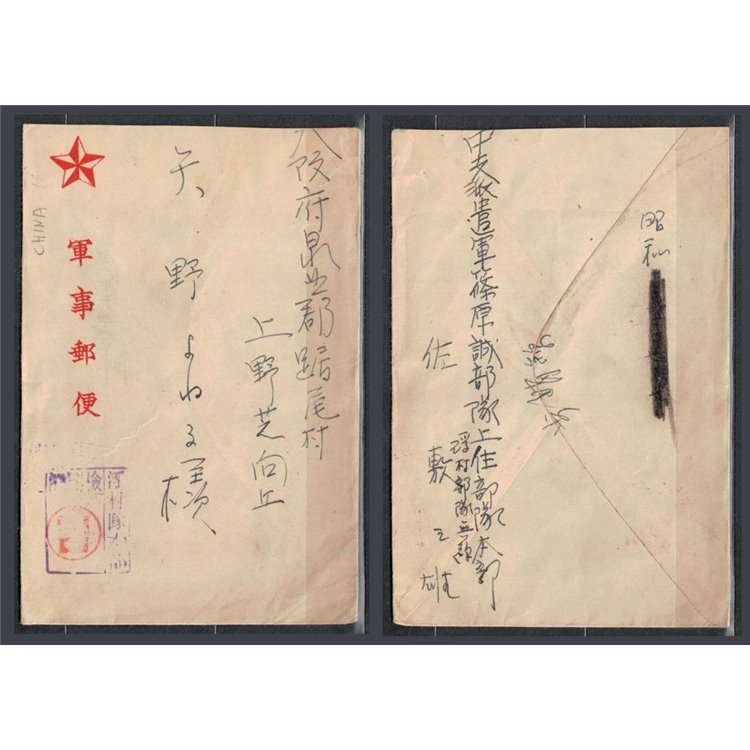 大阪府泉北郡踞尾村
上野芝向丘
矢野よね子様
軍事郵便
CHINA
浮村隊
検
中支派遣軍篠原誠部隊上住部隊本部
浮村部隊
佐敷
雄
昭和